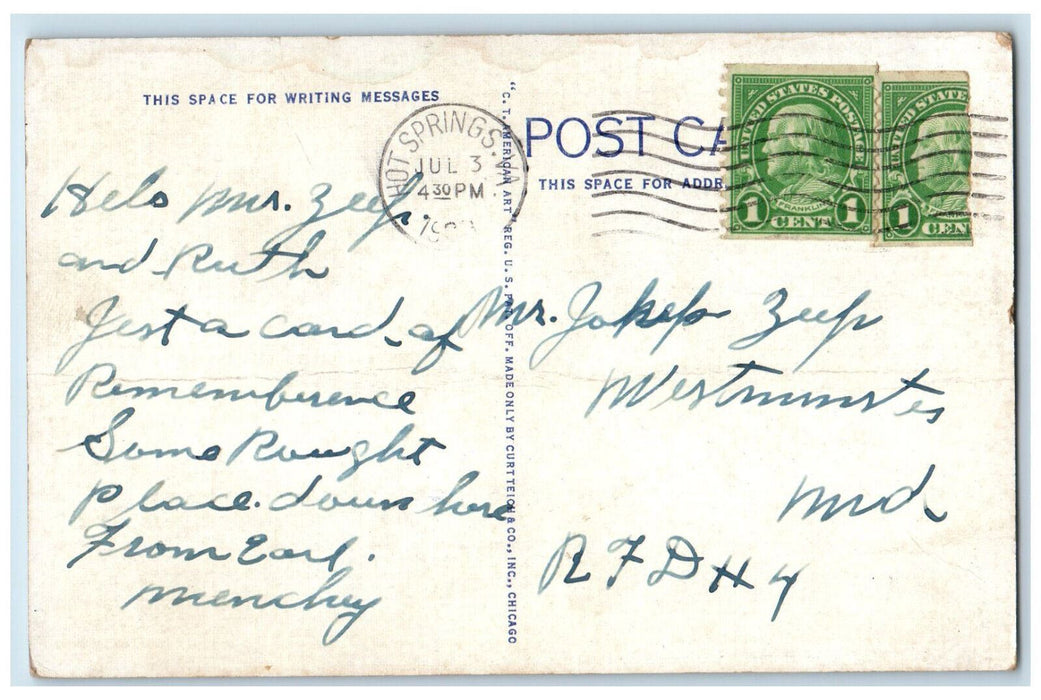 THIS SPACE FOR WRITING MESSAGES
Helo Mr. Zeep.
and Ruth
Jest a card of
Rememberence
Some Rought
Place. down here
From Earl.
Menchey
"C. T. AMERICAN ART" REG. U. S. PAT. OFF. MADE ONLY BY CURT TEICH & CO., INC., CHICAGO
HOT SPRINGS. VA.
JUL 3
4 30 PM
POST CA
THIS SPACE FOR ADDR
UNITED STATES POSTAGE
FRANKLIN
1 CENT 1
UNITED STATE
1 CEN
Mr. Zeep
Westminster
Md.
R F D # 4